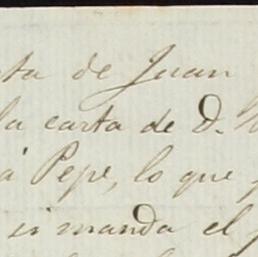 ta de Juan
la carta de D.
á Pepe, lo que
si manda el